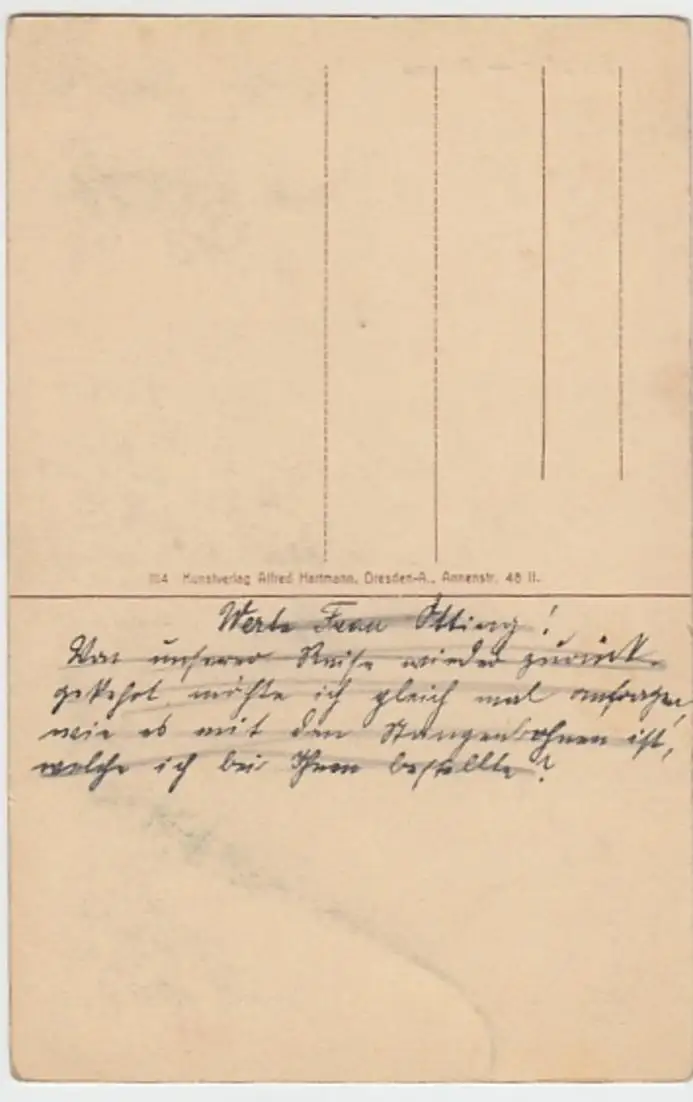 114 Kunstverlag Alfred Hartmann, Dresden-A., Annenstr. 48 II.
Werte Frau Otting!
Von unserer Reise wieder zurück-
gekehrt, möchte ich gleich mal anfragen,
wie es mit den Stangenbohnen ist,
welche ich bei Ihnen bestellte?